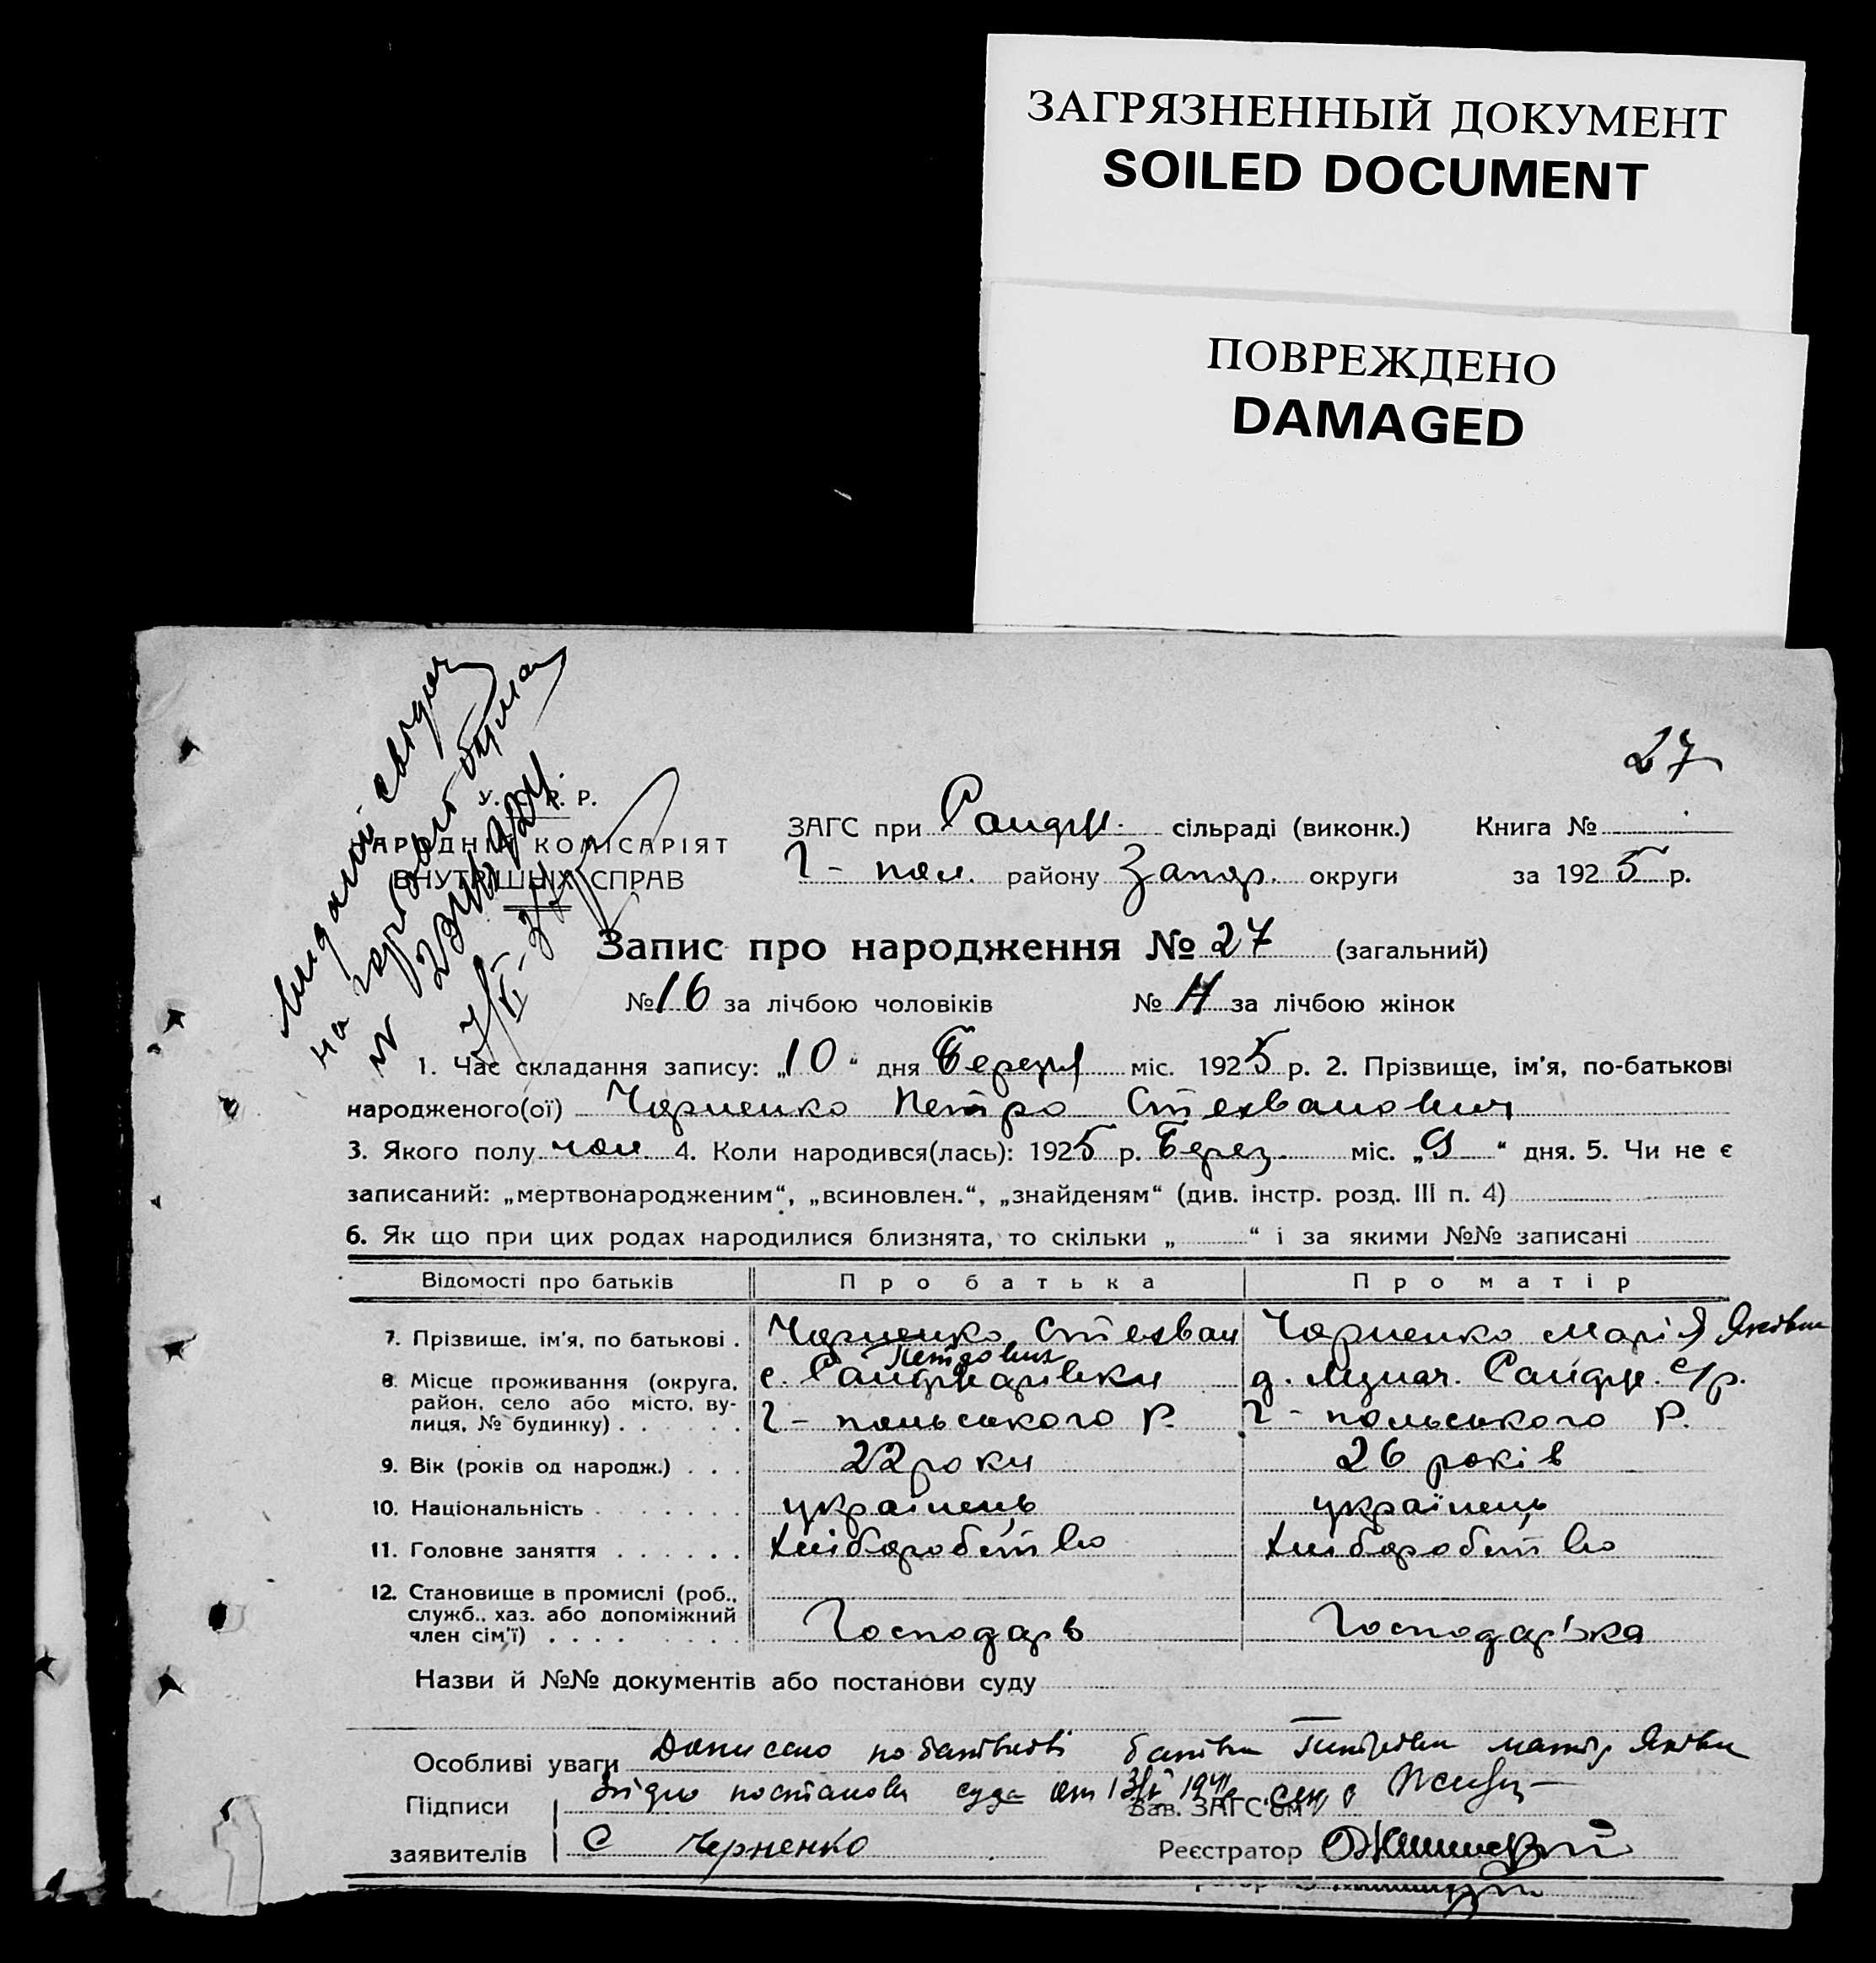 ЗАГРЯЗНЕННЫЙ ДОКУМЕНТ
SOILED DOCUMENT
ПОВРЕЖДЕНО
DAMAGED
27
У. С. Р. Р.
АРОДНІЙ КОМІСАРІЯТ
ВНУТРІШНІХ СПРАВ
ЗАГС при сільраді (виконк.) Книга №
Г- пол. району Запор. округи за 1925 р.
Запис про народження № 27 (загальний)
№ 16 за лічбою чоловіків № 11 за лічбою жінок
1. Час складання запису: „10“ дня Березня міс. 1925 р. 2. Прізвище, ім'я, по-батькові
народженого(ої) Чорненко Петро Стехванович
3. Якого полу чол. 4. Коли народився(лась): 1925 р. Берез. міс. „9“ дня. 5. Чи не є
записаний: „мертвонародженим“, „всиновлен.“, „знайденям“ (див. інстр. розд. III п. 4)
6. Як що при цих родах народилися близнята, то скільки „ “ і за якими №№ записані
Відомості про батьків Про батька Про матір
7. Прізвище, ім'я, по батькові . Чорненко Стехван Петрович Чорненко Марія Яковл
8. Місце проживання (округа, район, село або місто, вулиця, № будинку) . . . . . .
с.
Г- польського р. Г- польського р.
9. Вік (років од народж.) . . . 22 роки 26 років
10. Національність . . . . . . . українець українець
11. Головне заняття . . . . . . Хліборобство Хліборобство
12. Становище в промислі (роб., служб., хаз. або допоміжний член сім'ї) . . . . . . . .
Господарь Господарька
Назви й №№ документів або постанови суду
Особливі уваги Дописано по батькові
постанови суда
Підписи Зав. ЗАГС'ом
заявителів С Черненко Реєстратор